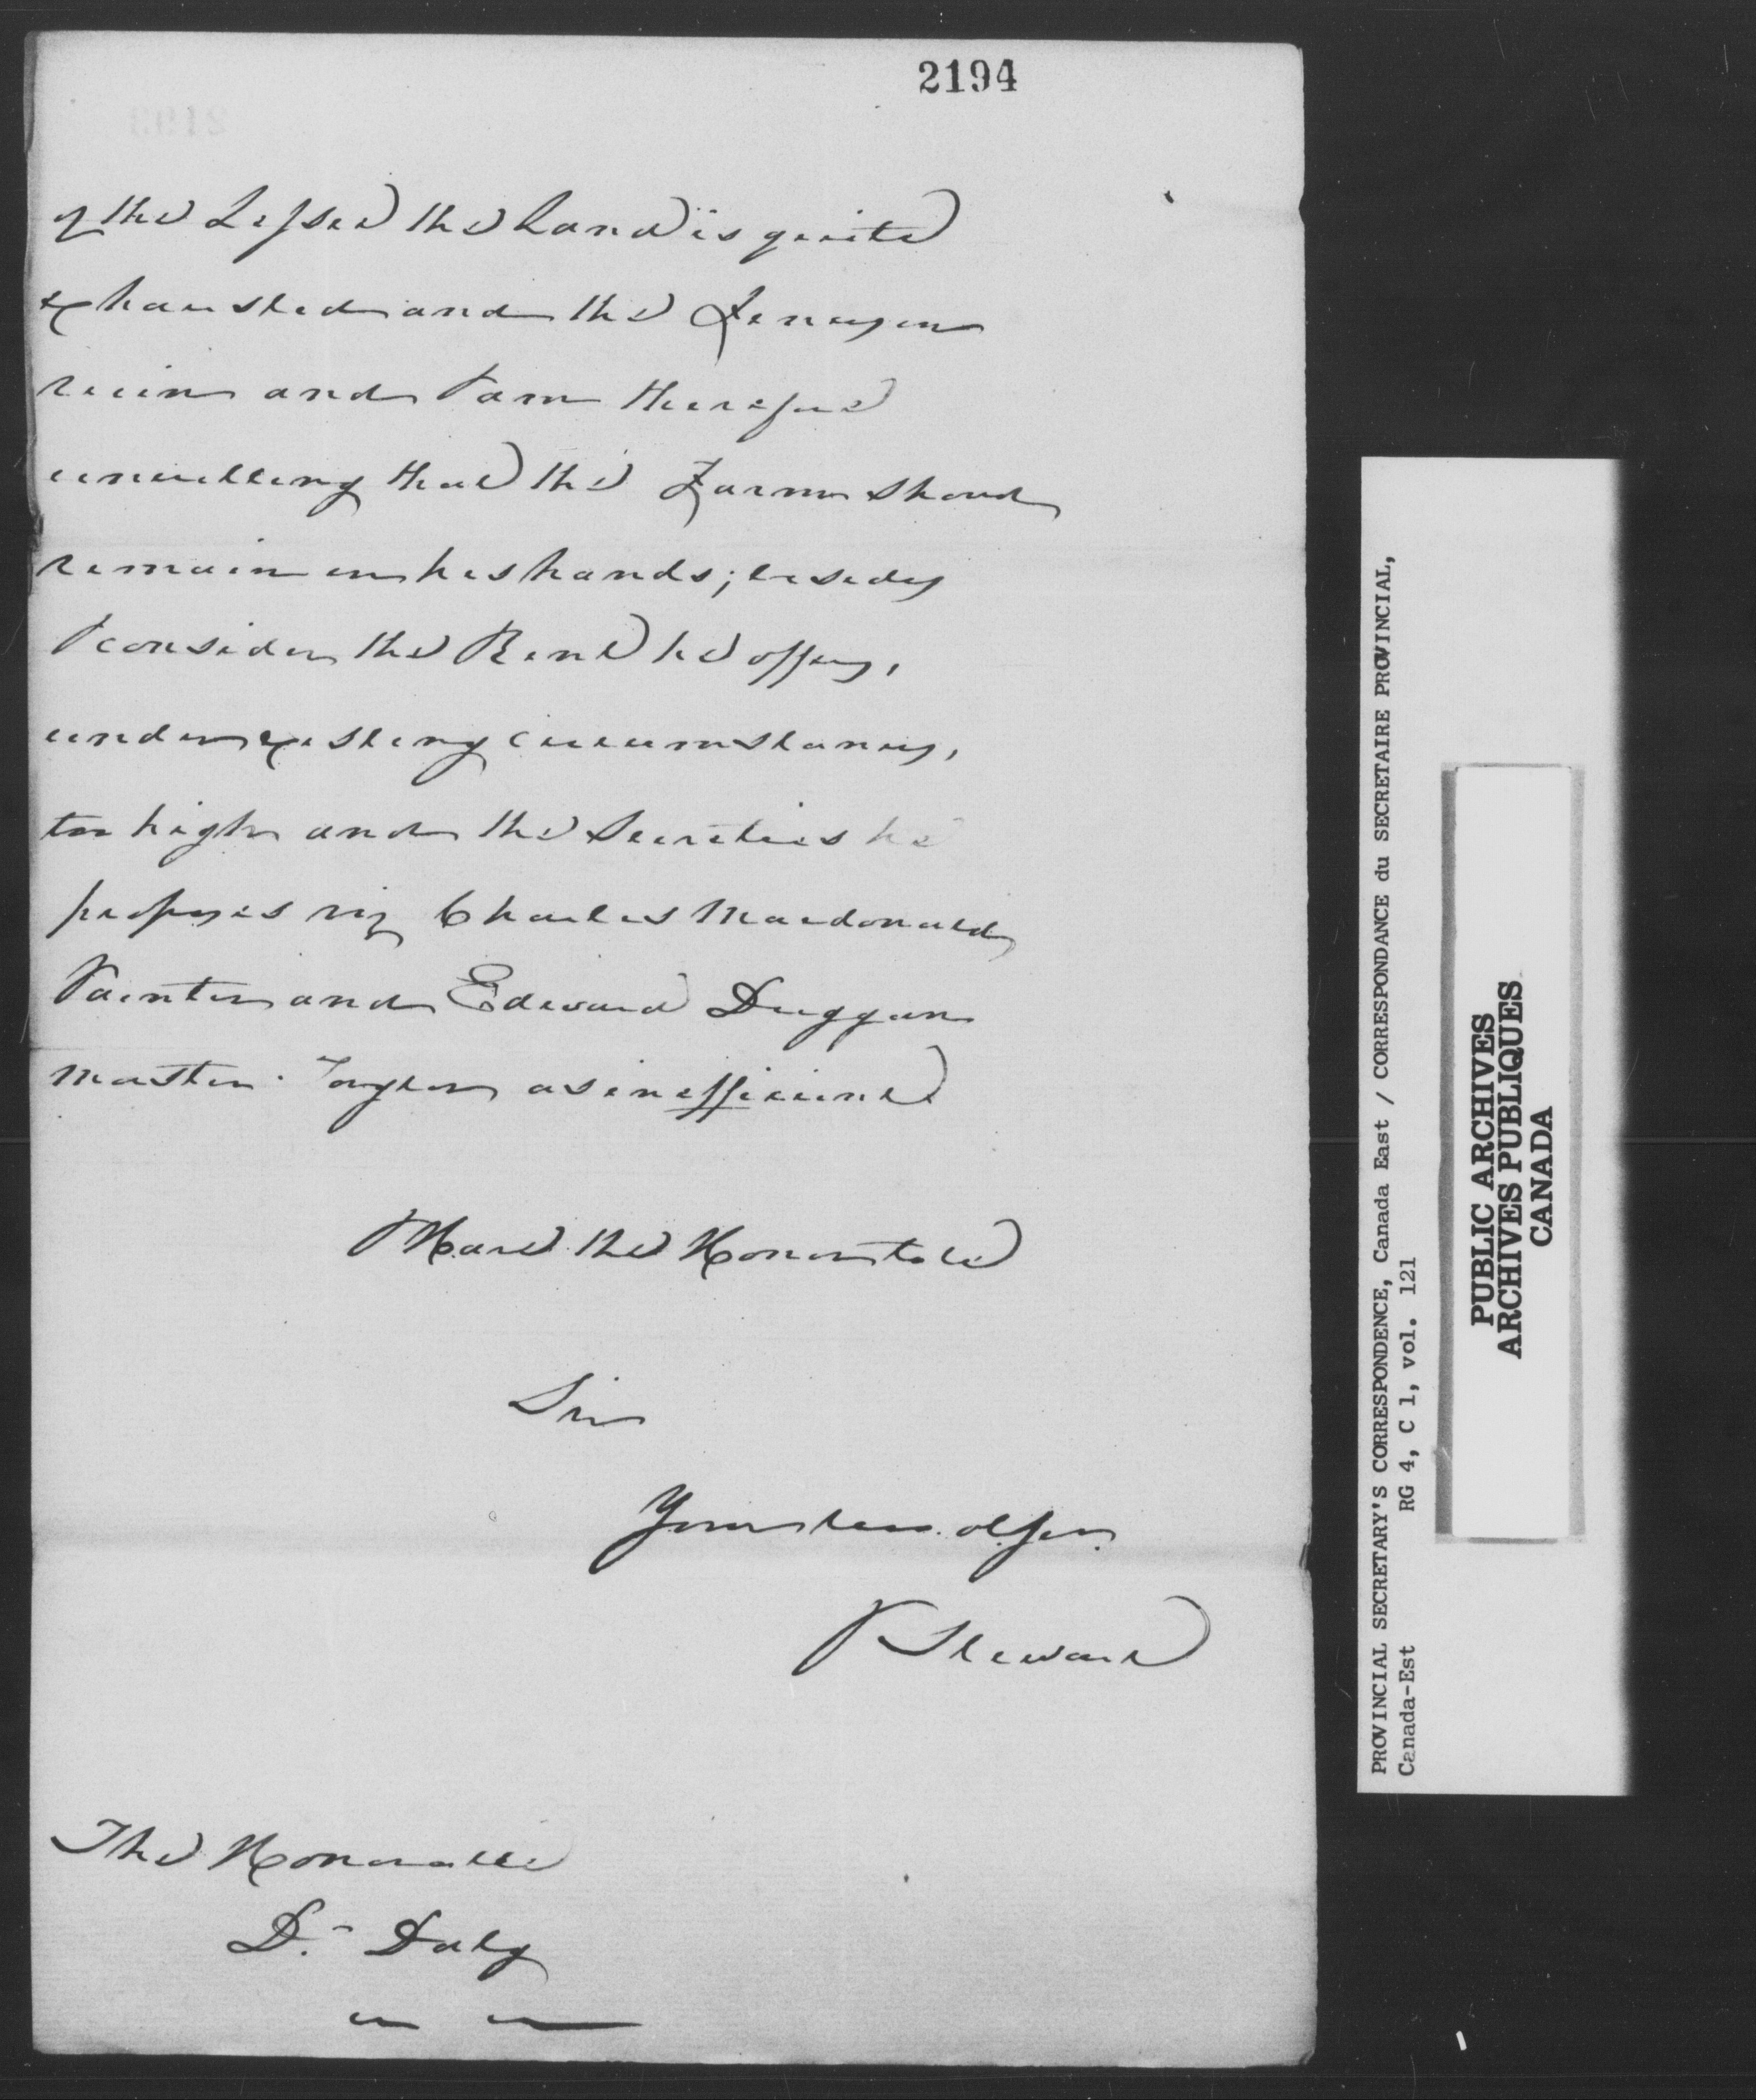 2194
of the Lessee the Land is quite
exhausted and the Fences in
ruin and I am therefore
unwilling that the Farm shoud
remain in his hands; besides
I consider the Rent he offers,
under existing circumstances,
too high and the Securities he
proposes viz Charles Macdonald
Painter and Edward Duggan
Master as inefficient
I Have the Honorable
Sir
Your
J Stewart
The Honorable
D. Daly
PROVINCIAL SECRETARY'S CORRESPONDENCE, Canada East / CORRESPONDANCE du SECRETAIRE PROVINCIAL,
Canada-Est RG 4, C 1, vol. 121
PUBLIC ARCHIVES
ARCHIVES PUBLIQUES
CANADA